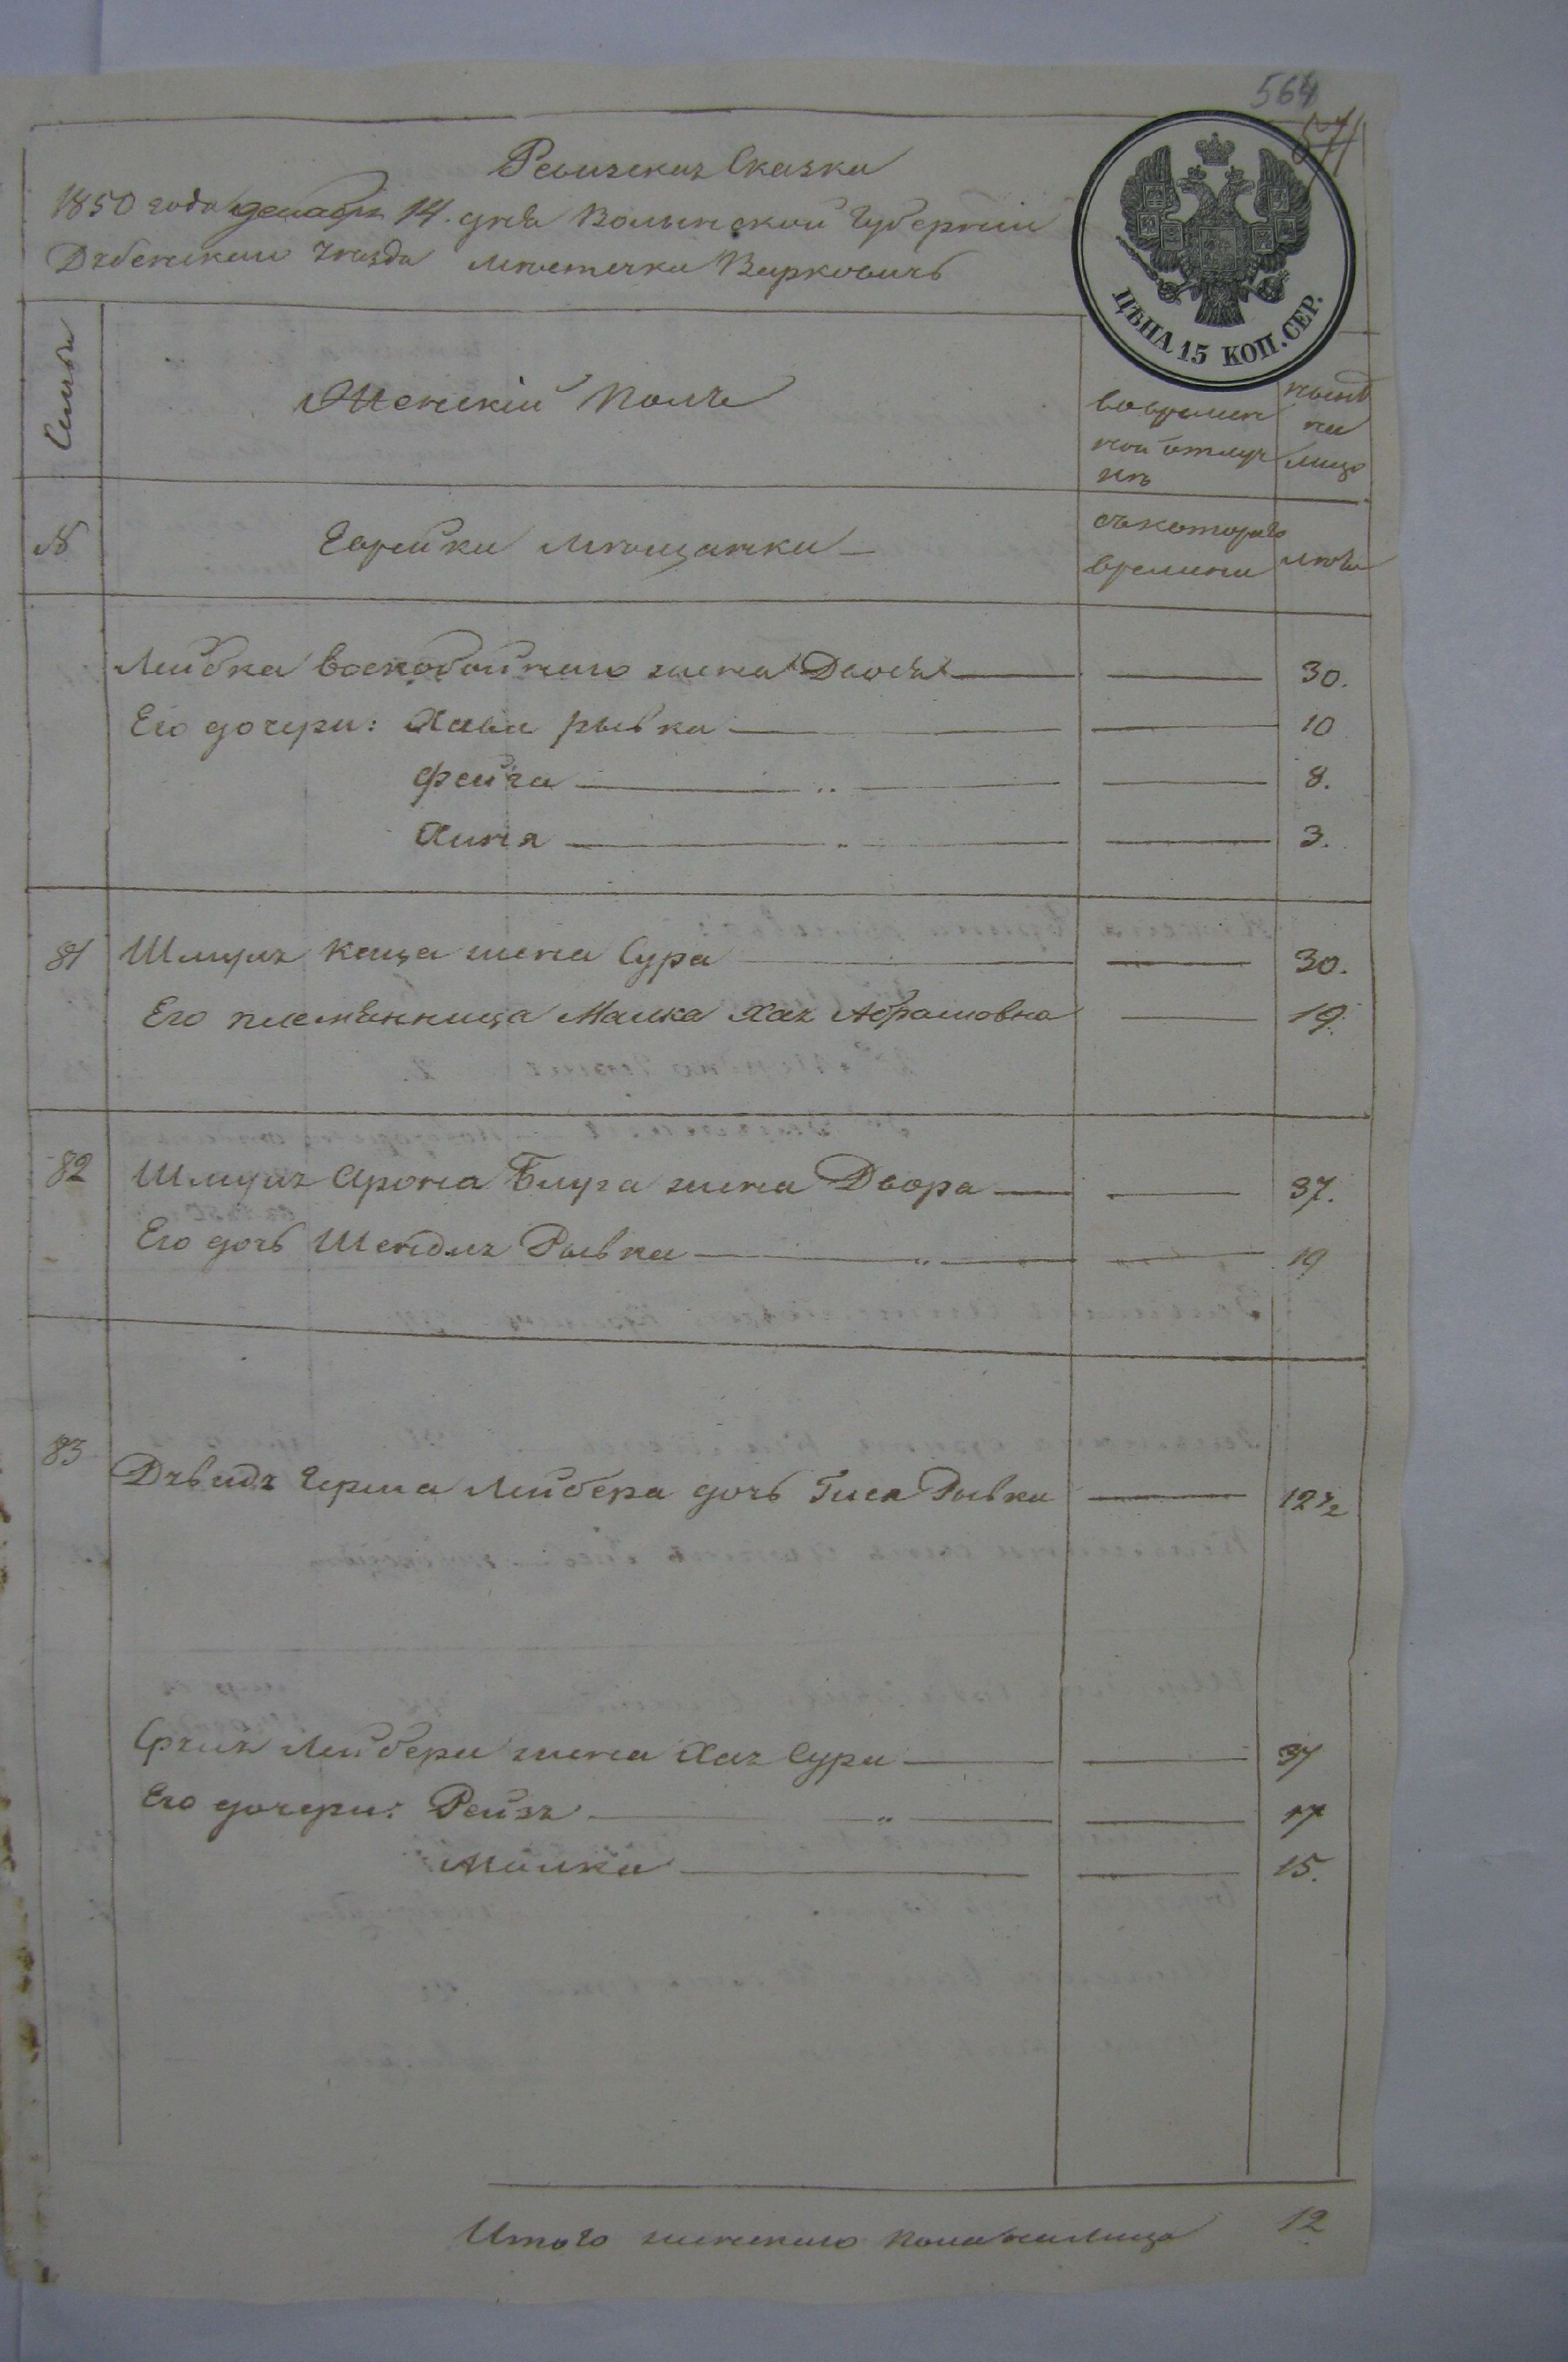 564
571
Ревизская Сказка
1850 года декабря 14. дня Волынской Губернии
Дубенского уезда местечка Варковичъ
ЦѢНА 15 КОП. СЕР.
Семьи
Женскій Полъ
во времен
ной отлуч
кѣ
нынѣ
на
лицо
№
Еврейки мѣщанки
съ котораго
времени
лѣта
Лейбка Воскобойника жена Двося 30.
Его дочери: Хава рывка 10
Фейга 8.
Хиня 3.
81 Шмуля Каца жена Сура 30.
Его племѣнница Малка Хая Абрамовна 19.
82 Шмуля Арона Блуга жена Двора 37.
Его дочь Шендля Рывка 19
83
Давида Герша Лейбера дочь Гися Рывка 12 1/2
Сруля Лейбера жена Хая Сура 37
Его дочери: Рейзя 17
Малка 15.
Итого женскаго пола на лицо 12